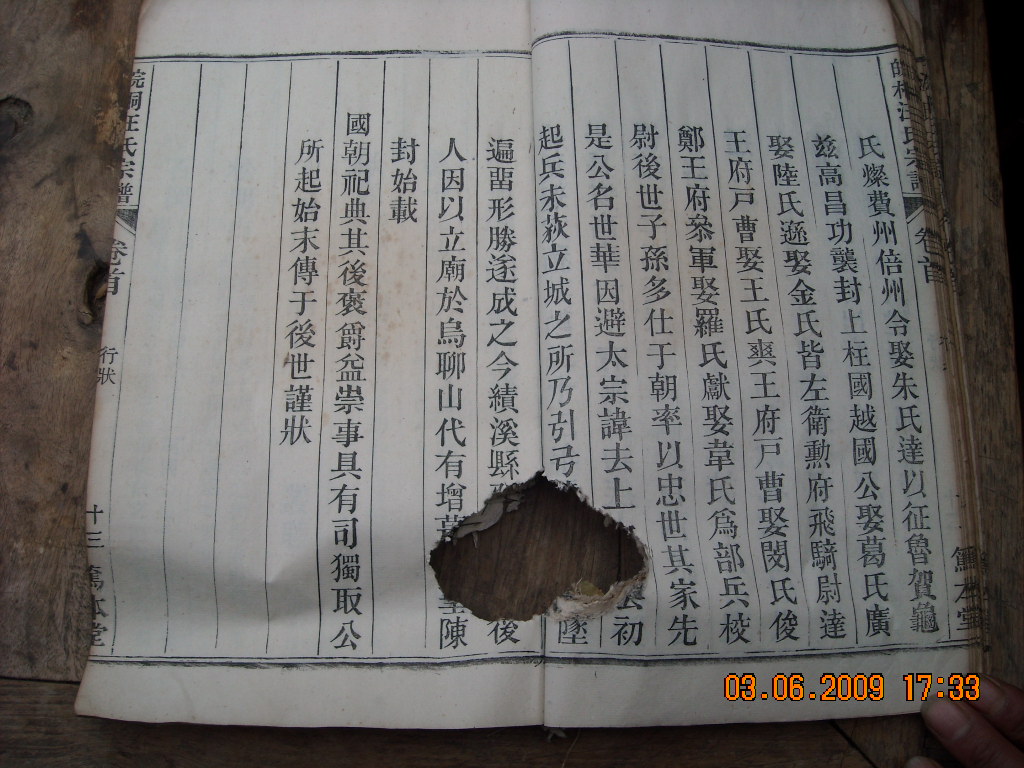 氏燦費州倍州令娶朱氏達以征魯賀龜
兹高昌功襲封上柱國越國公娶葛氏廣
娶陸氏遜娶金氏皆左衛勲府飛騎尉達
王府戸曹娶王氏爽王府戸曹娶閔氏俊
鄭王府叅軍娶羅氏獻娶韋氏爲部兵校
尉後世子孫多仕于朝率以忠世其家先
是公名世華因避太宗諱去上初
起兵未荻立城之所乃引弓墜
遍畱形勝遂成之今績溪縣後
人因以立廟於烏聊山代有增陳
封始載
國朝祀典其後褒爵益崇事具有司獨取公
所起始末傳于後世謹狀
皖桐汪氏宗譜
卷首
行狀
十三
篤本堂
卷首
篤本堂
03.06.2009 17:33